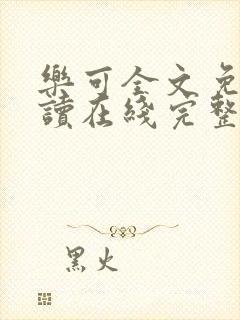 樂可全文免
讀在綫完整
黑火